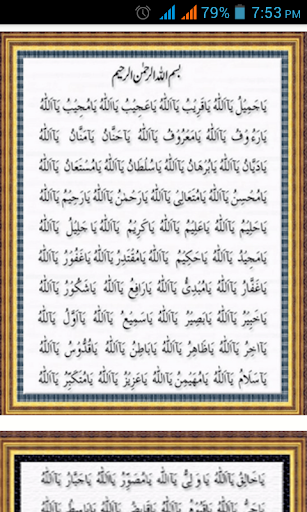 7:53 PM 79%
بسم الله الرحمن الرحيم
يَاجَمِيلُ يَآاَللهُ يَاقَرِيبُ يَآاَللهُ يَاعَجِيبُ يَآاَللهُ يَامُجِيبُ يَآاَللهُ
يَارَءُوفُ يَآاَللهُ يَامَعْرُوفُ يَآاَللهُ يَاحَنَّانُ يَآاَللهُ يَامَنَّانُ يَآاَللهُ
يَادَيَّانُ يَآاَللهُ يَابُرْهَانُ يَآاَللهُ يَاسُلْطَانُ يَآاَللهُ يَامُسْتَعَانُ يَآاَللهُ
يَامُحْسِنُ يَآاَللهُ يَامُتَعَالِي يَآاَللهُ يَارَحْمٰنُ يَآاَللهُ يَارَحِيمُ يَآاَللهُ
يَاحَلِيمُ يَآاَللهُ يَاعَلِيمُ يَآاَللهُ يَاكَرِيمُ يَآاَللهُ يَاجَلِيلُ يَآاَللهُ
يَامَجِيدُ يَآاَللهُ يَاحَكِيمُ يَآاَللهُ يَامُقْتَدِرُ يَآاَللهُ يَاغَفُورُ يَآاَللهُ
يَاغَفَّارُ يَآاَللهُ يَامُبْدِئُ يَآاَللهُ يَارَافِعُ يَآاَللهُ يَاشَكُورُ يَآاَللهُ
يَاخَبِيرُ يَآاَللهُ يَابَصِيرُ يَآاَللهُ يَاسَمِيعُ يَآاَللهُ يَآاَوَّلُ يَآاَللهُ
يَآاٰخِرُ يَآاَللهُ يَاظَاهِرُ يَآاَللهُ يَابَاطِنُ يَآاَللهُ يَاقُدُّوسُ يَآاَللهُ
يَاسَلَامُ يَآاَللهُ يَامُهَيْمِنُ يَآاَللهُ يَاعَزِيزُ يَآاَللهُ يَامُتَكَبِّرُ يَآاَللهُ
يَاخَالِقُ يَآاَللهُ يَاوَلِيُّ يَآاَللهُ يَامُصَوِّرُ يَآاَللهُ يَاجَبَّارُ يَآاَللهُ